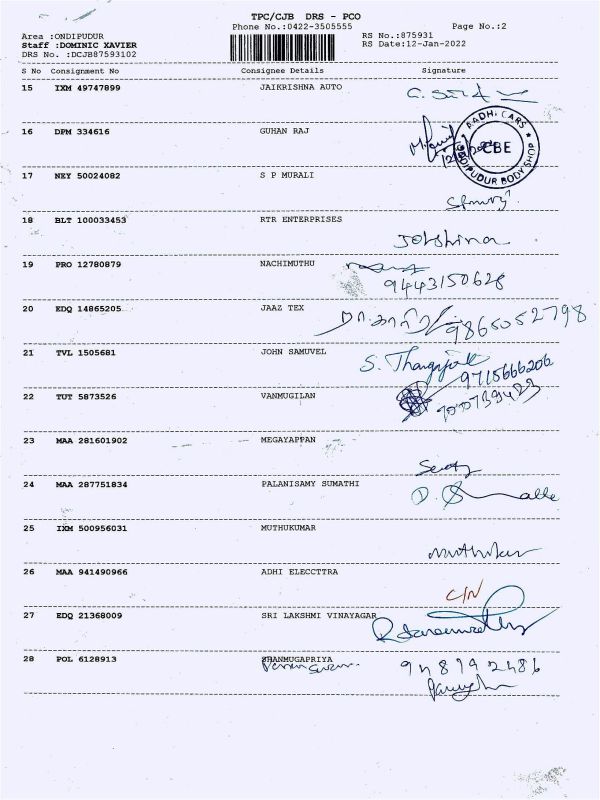 TPC/CJB DRS - PCO
Phone No.:0422-3505555 Page No.:2
Area :ONDIPUDUR
RS No.:875931
Staff :DOMINIC XAVIER
RS Date:12-Jan-2022
DRS No. :DCJB87593102
S No Consignment No Consignee Details Signature
15 IXM 49747899 JAIKRISHNA AUTO
16 DPM 334616 GUHAN RAJ
AADHI CARS
CBE
ONDIPUDUR BODY SHOP
17 NEY 50024082 S P MURALI
18 BLT 100033453 RTR ENTERPRISES
Jotshina
19 PRO 12780879 NACHIMUTHU
9443150628
20 EDQ 14865205 JAAZ TEX
9865052798
21 TVL 1505681 JOHN SAMUVEL
9715666206
22 TUT 5873526 VANMUGILAN
23 MAA 281601902 MEGAYAPPAN
24 MAA 287751834 PALANISAMY SUMATHI
25 IXM 500956031 MUTHUKUMAR
26 MAA 941490966 ADHI ELECCTTRA
C/N
27 EDQ 21368009 SRI LAKSHMI VINAYAGAR
28 POL 6128913 SHANMUGAPRIYA